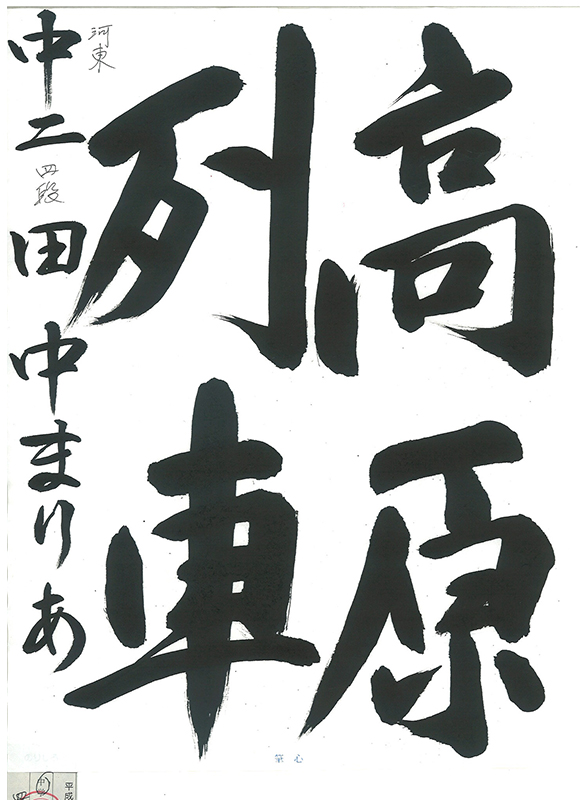 高原
列車
河東
中二 四段 田中まりあ
筆心
平成
中
四